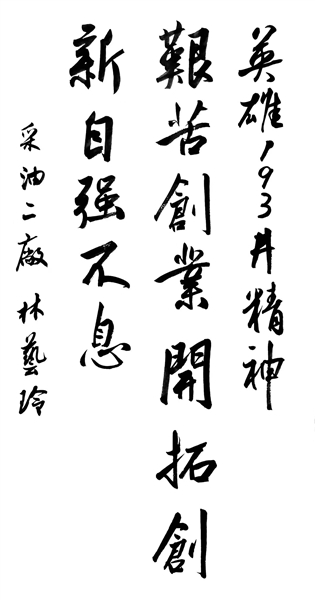 英雄193井精神
艱苦創業開拓創
新自强不息
采油二廠 林藝玲